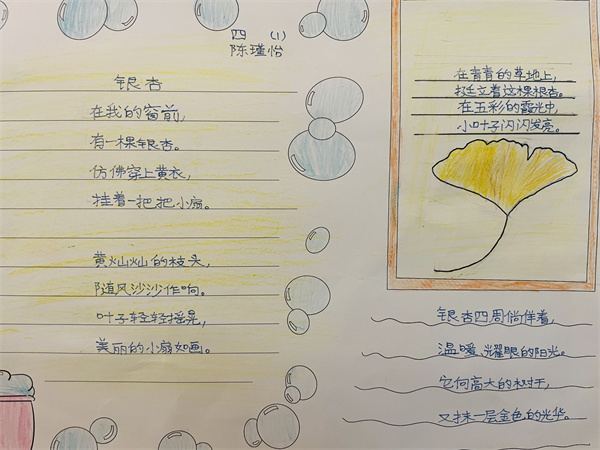 四 （1）
陈瑾怡
银杏
在我的窗前，
有一棵银杏。
仿佛穿上黄衣，
挂着一把把小扇。
黄灿灿的枝头，
随风沙沙作响。
叶子轻轻摇晃，
美丽的小扇如画。
在青青的草地上，
挺立着这棵银杏。
在五彩的霞光中，
小叶子闪闪发亮。
银杏四周徜徉着，
温暖、耀眼的阳光。
它向高大的树干，
又抹一层金色的光华。